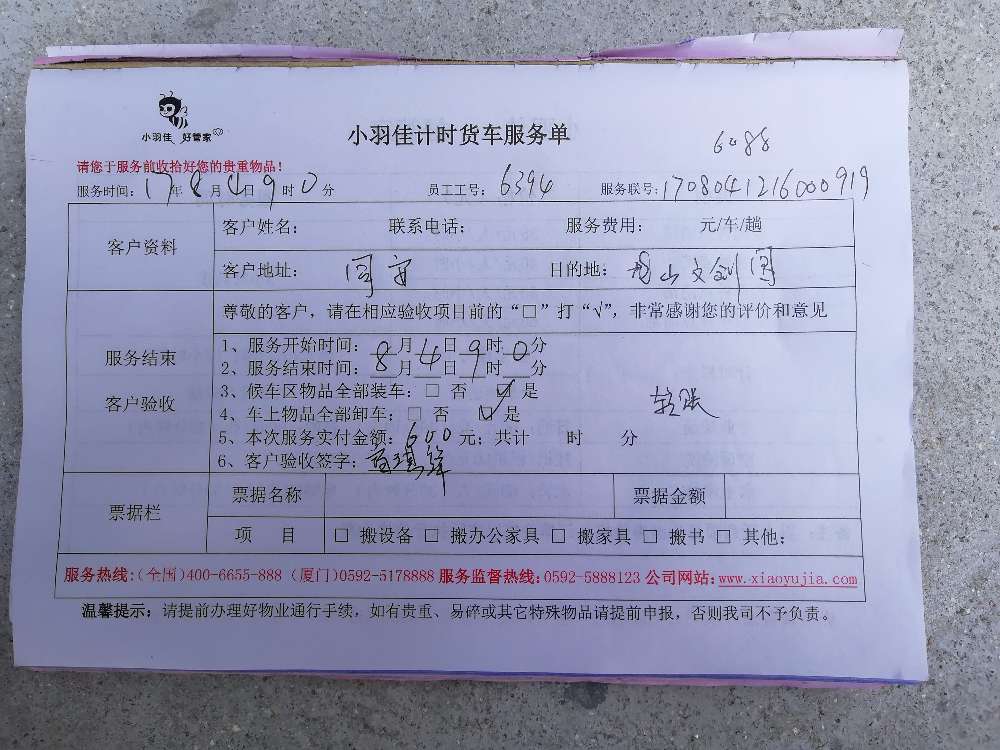 小羽佳 好管家
小羽佳计时货车服务单
6088
请您于服务前收拾好您的贵重物品！
服务时间：17年8月4日9时0分 员工工号：6394 服务联号：1708041216000919
客户资料
客户姓名： 联系电话： 服务费用： 元/车/趟
客户地址：同安 目的地：
尊敬的客户，请在相应验收项目前的“□”打“√”，非常感谢您的评价和意见
服务结束
客户验收
1、服务开始时间：8月4日9时0分
2、服务结束时间：8月4日9时0分
3、候车区物品全部装车：□ 否 ☑ 是
4、车上物品全部卸车：□ 否 ☑ 是
转账
5、本次服务实付金额：600元；共计 时 分
6、客户验收签字：
票据栏
票据名称 票据金额
项 目 □ 搬设备 □ 搬办公家具 □ 搬家具 □ 搬书 □ 其他：
服务热线：(全国)400-6655-888 (厦门)0592-5178888 服务监督热线：0592-5888123 公司网站：www.xiaoyujia.com
温馨提示：请提前办理好物业通行手续，如有贵重、易碎或其它特殊物品请提前申报，否则我司不予负责。